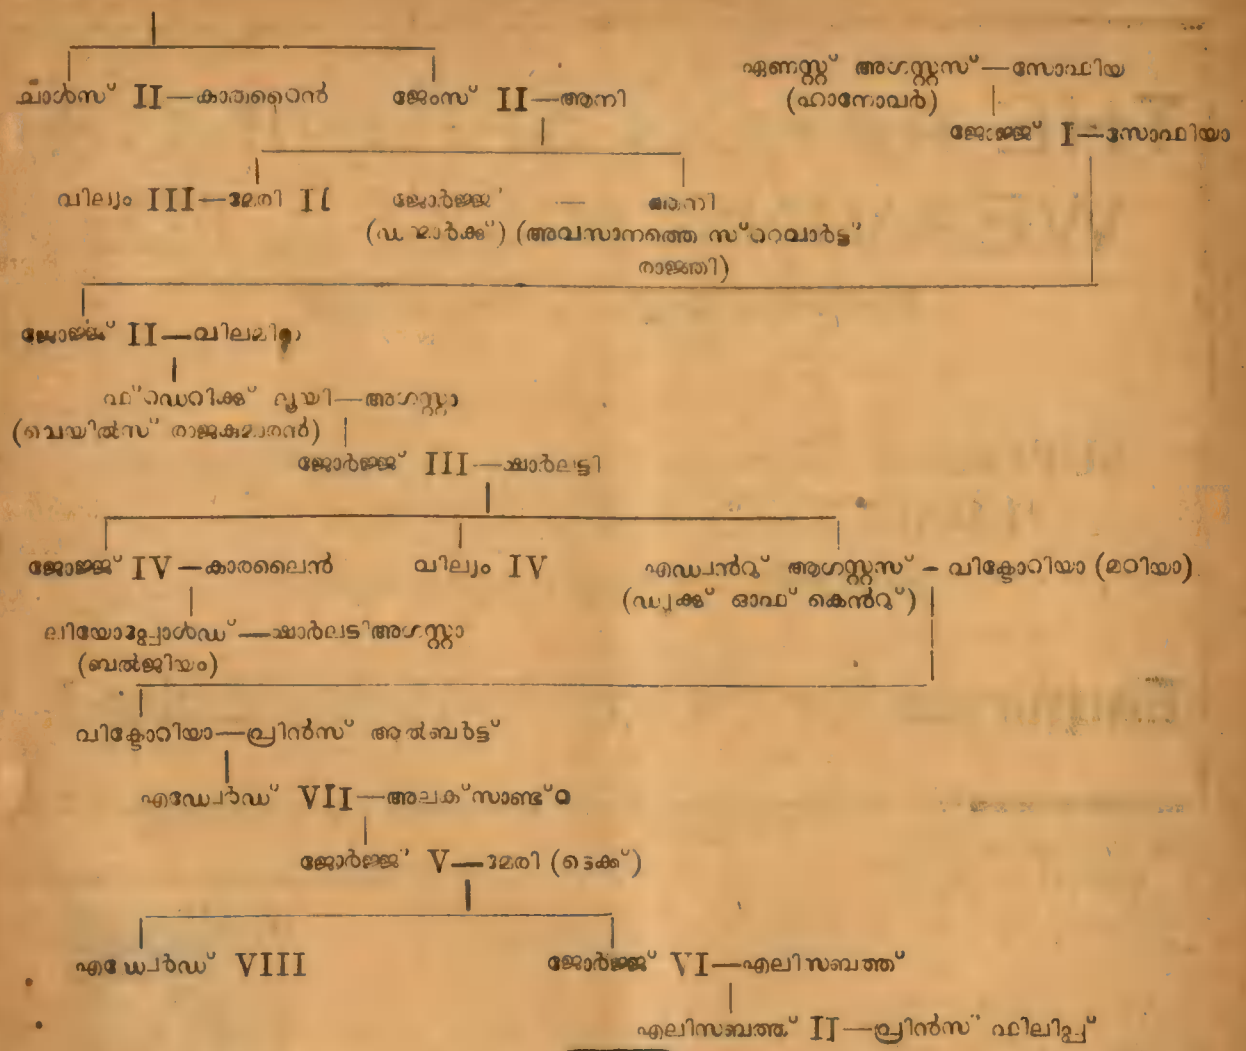 ചാൾസ് II—കാതറൈൻ ജേംസ് II—ആനി
ഏണസ്റ്റ് അഗസ്റ്റസ്—സോഫിയ
(ഹാനോവർ)
ജോജ്ജ് I—സോഫിയാ
വില്യം III—മേരി II ജോർജ്ജ് — ആനി
(ഡന്മാർക്ക്) (അവസാനത്തെ സ്റ്റുവാർട്ട്
രാജ്ഞി)
ജോജ്ജ് II—വിലമിന
ഫ്രഡെറിക്ക് ലൂയി—അഗസ്റ്റാ
(വെയിൽസ് രാജകുമാരൻ)
ജോർജ്ജ് III—ഷാർലട്ടി
ജോജ്ജ് IV—കാരലൈൻ വില്യം IV എഡ്വൻറു് ആഗസ്റ്റസ് – വിക്ടോറിയാ (മറിയാ)
(ഡ്യൂക്ക് ഓഫ് കെൻറു്)
ലിയോപ്പോൾഡ്—ഷാർലട്അഗസ്റ്റാ
(ബൽജിയം)
വിക്ടോറിയാ—പ്രിൻസ് ആൽബർട്ട്
എഡ്വേർഡ് VII—അലക്സാണ്ഡ്റ
ജോർജ്ജ് V—മേരി (ടെക്ക്)
എഡ്വേർഡ് VIII ജോർജ്ജ് VI—എലിസബത്ത്
എലിസബത്ത് II—പ്രിൻസ് ഫിലിപ്പ്